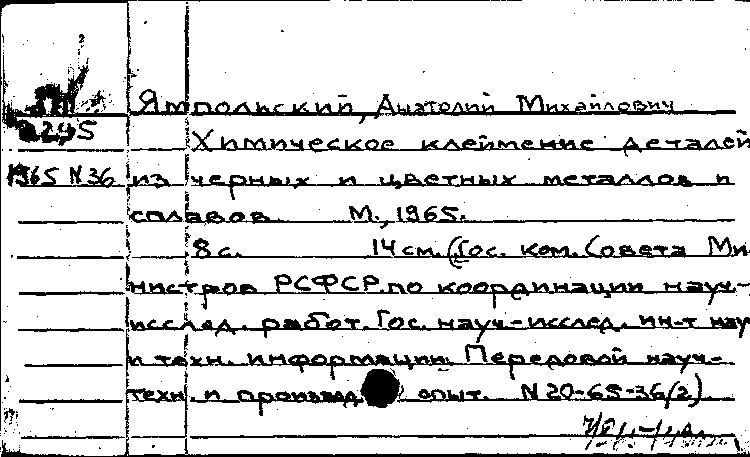 Ямпольский, Анатолий Михайлович
Химическое клеймение деталей
1965 N36 из черных и цветных металлов и
сплавов М., 1965.
8 с. 14 см. (Гос. ком. Совета Ми-
нистров РСФСР по координации науч-
исслед. работ. Гос. науч-исслед. ин-т науч
и техн. информации. Передовой науч-
техн. и производ. опыт. N 20-65-36/2)